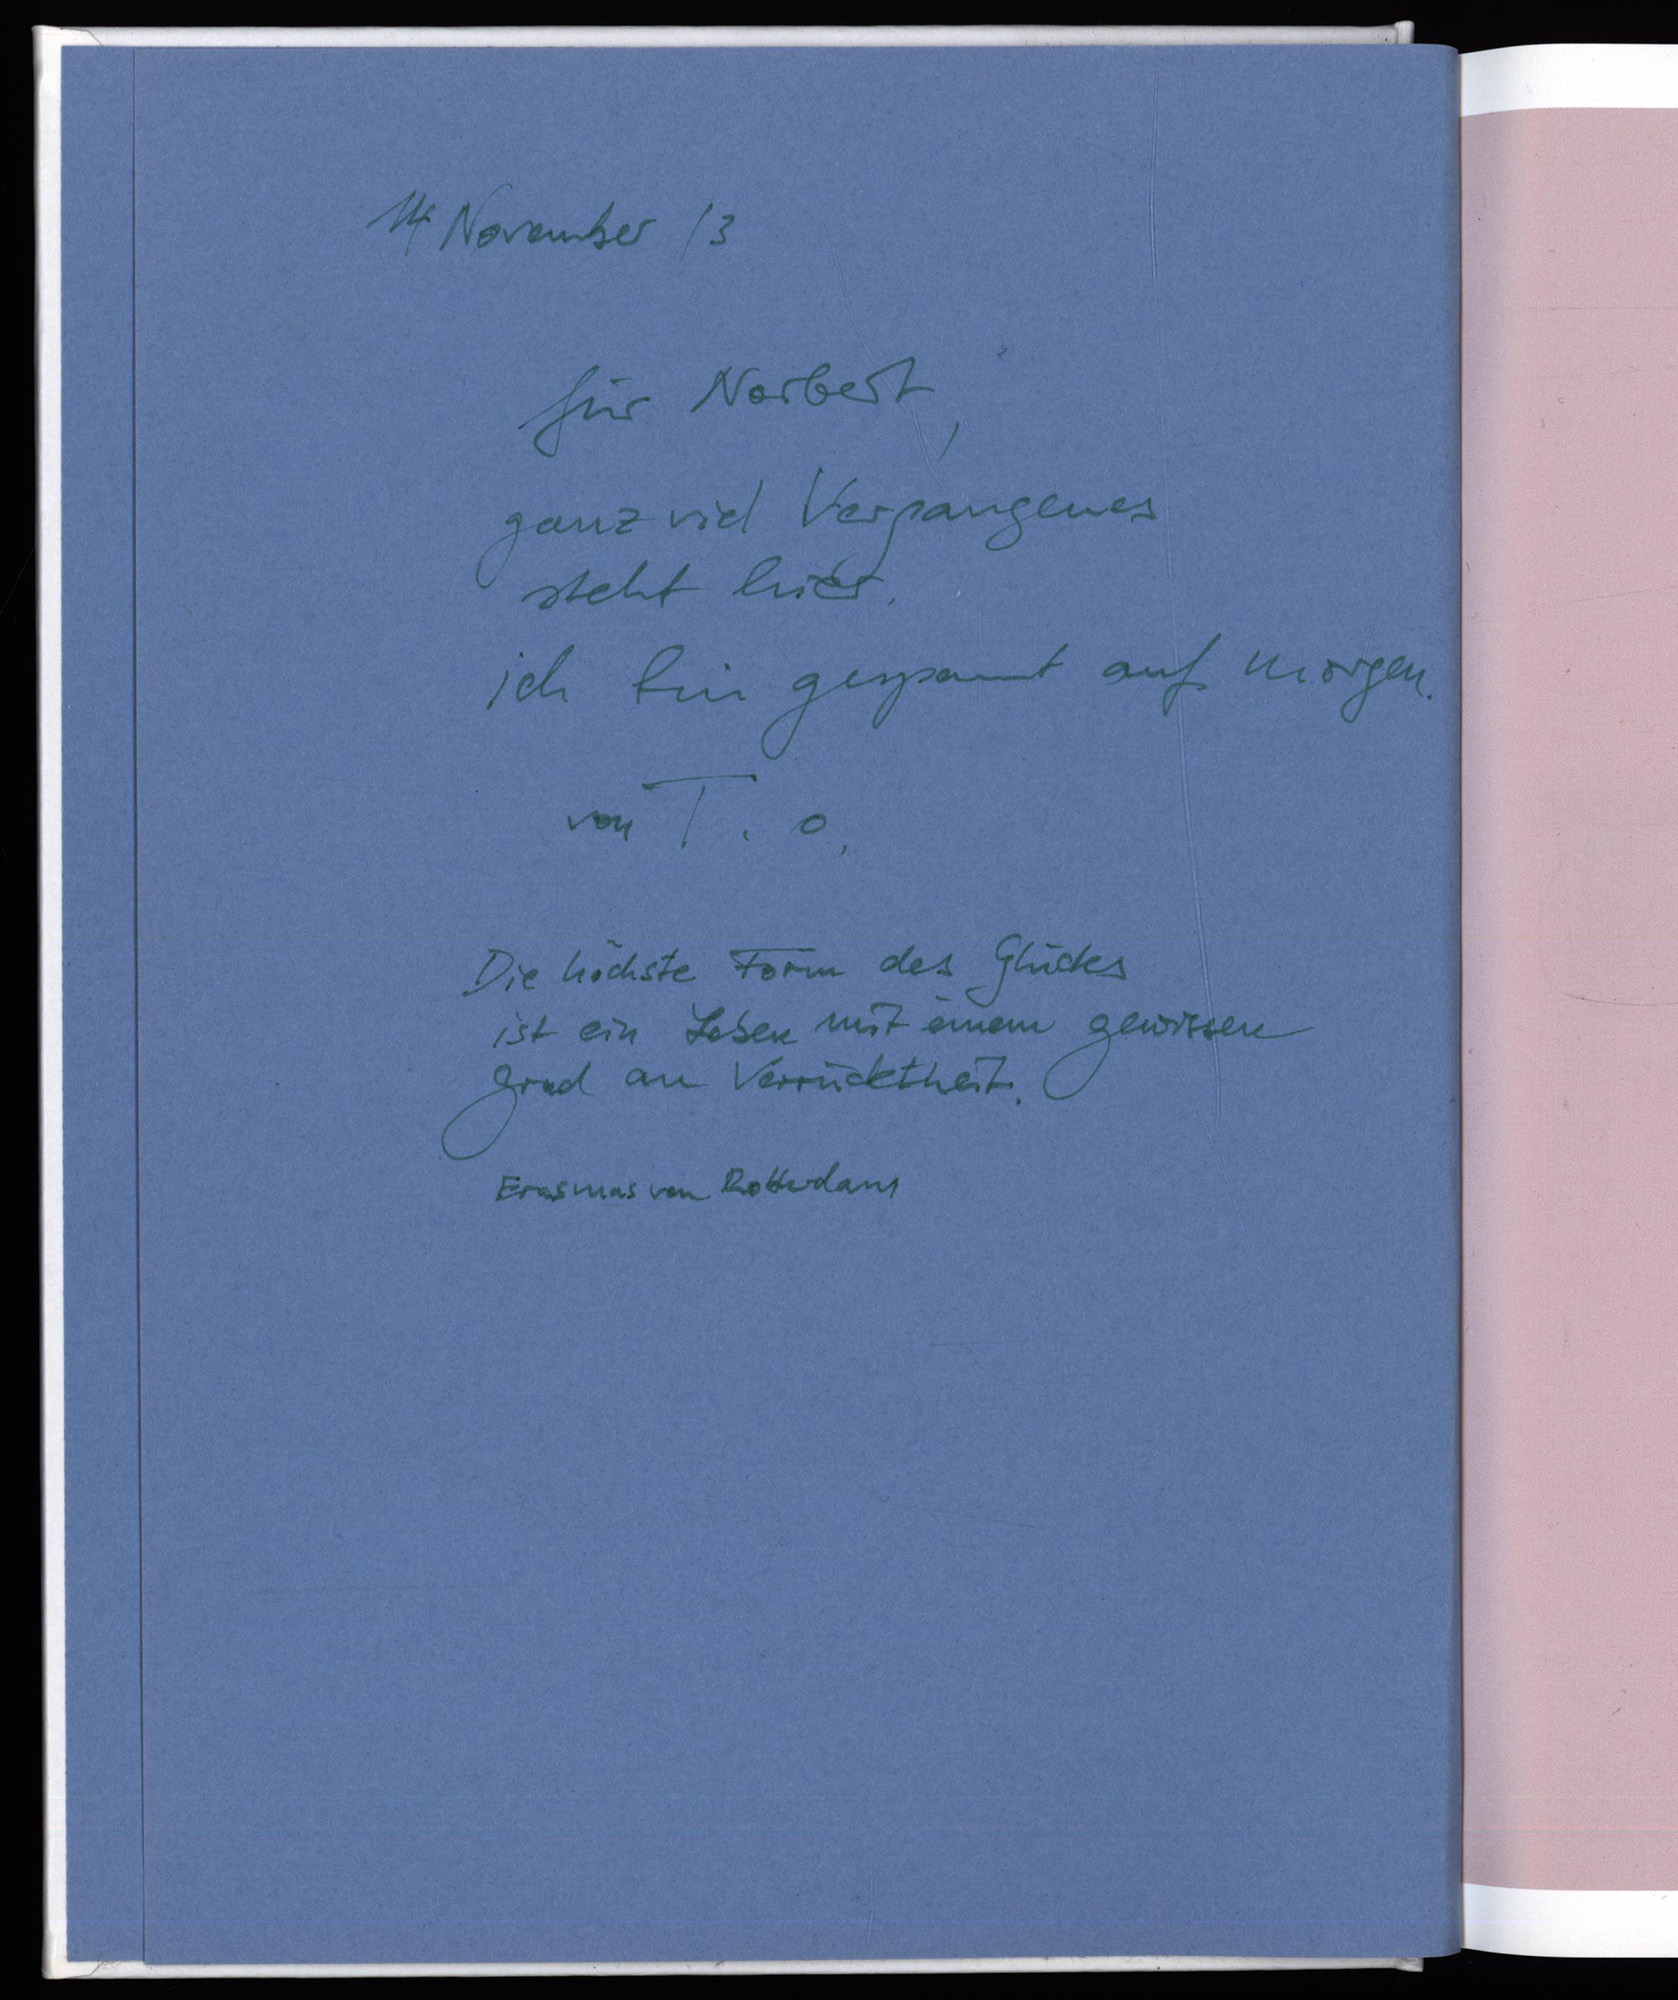 14 November 13
für Norbert,
ganz viel Vergangenes
steht hier.
ich bin gespannt auf morgen.
von T. O.
Die höchste Form des Glückes
ist ein Leben mit einem gewissen
Grad an Verrücktheit.
Erasmus von Rotterdam